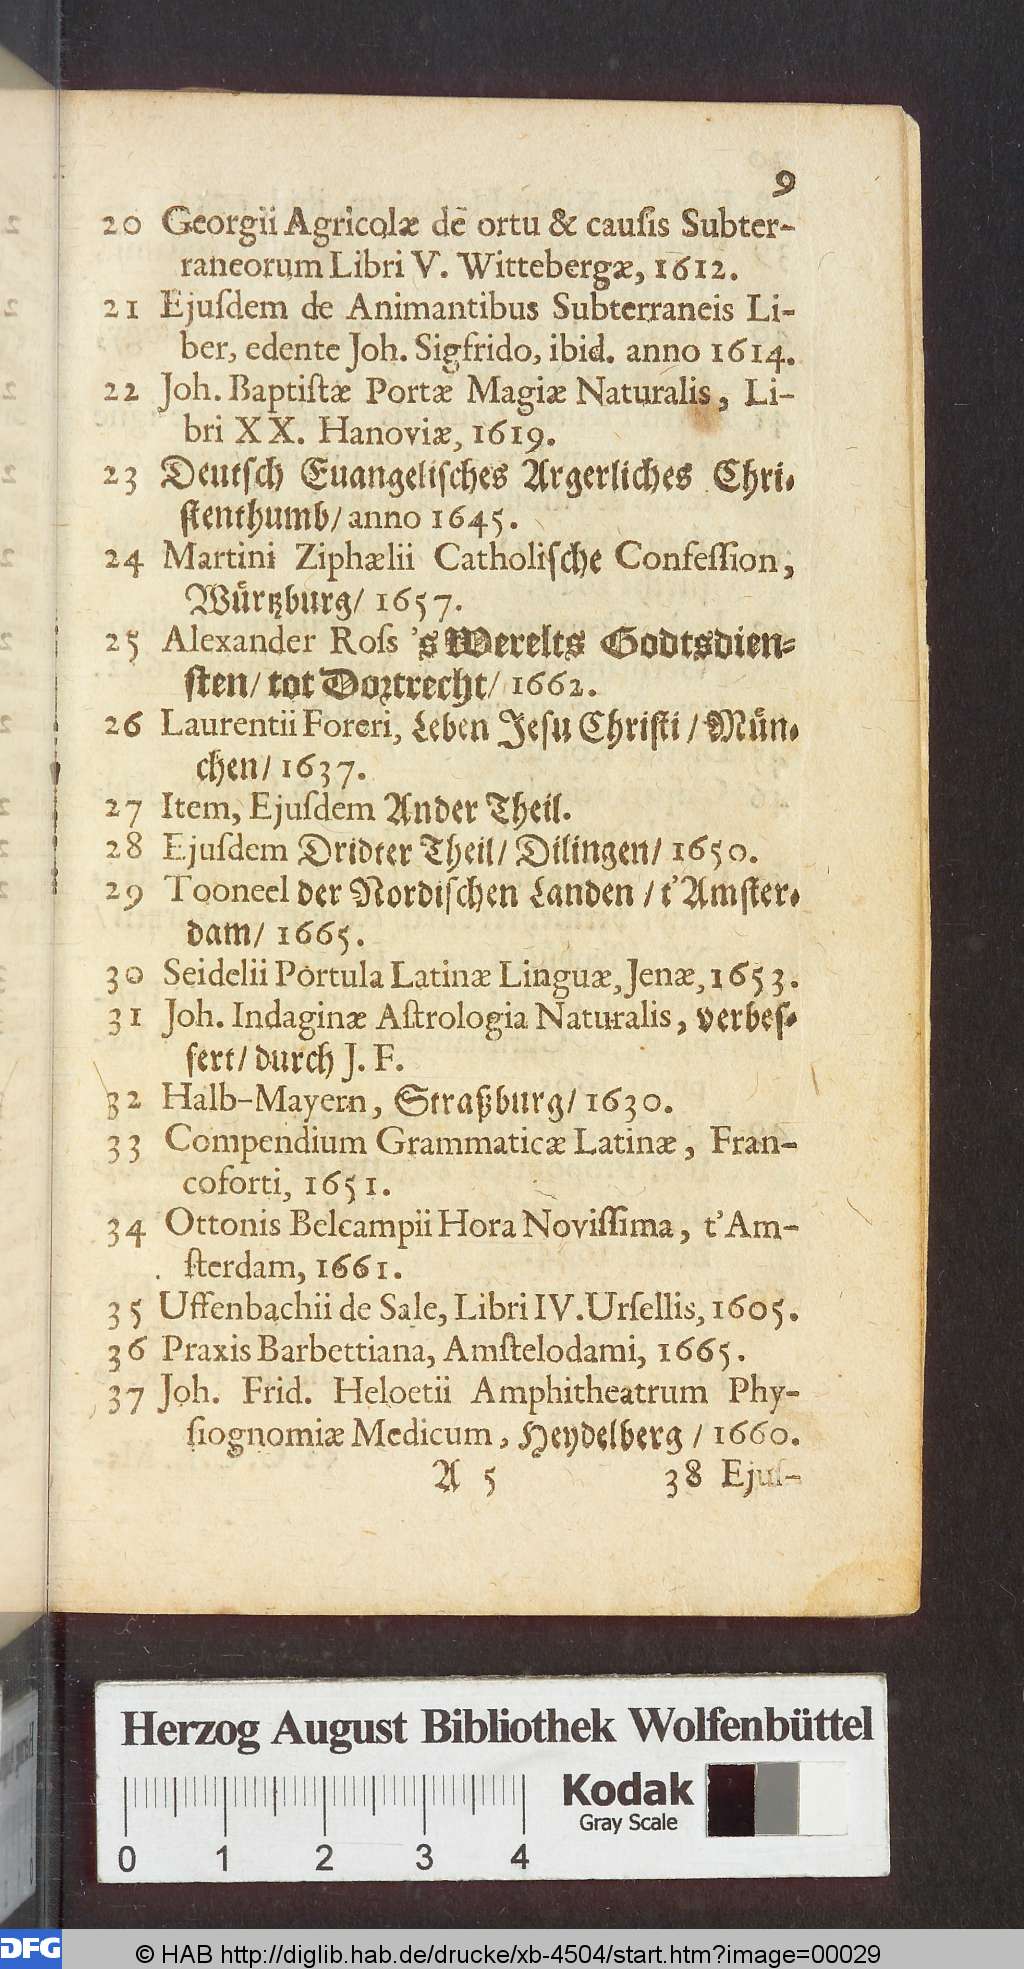 9
20 Georgii Agricolæ de ortu & cauſis Subter-
raneorum Libri V. Wittebergæ, 1612.
21 Ejuſdem de Animantibus Subterraneis Li-
ber, edente Joh. Sigfrido, ibid. anno 1614.
22 Joh. Baptiſtæ Portæ Magiæ Naturalis, Li-
bri XX. Hanoviæ, 1619.
23 Deutſch Euangeliſches Argerliches Chri-
ſtenthumb/ anno 1645.
24 Martini Ziphælii Catholiſche Confeſſion,
Würtzburg/ 1657.
25 Alexander Roſs 's Werelts Godtsdien-
ſten/ tot Dortrecht/ 1662.
26 Laurentii Foreri, Leben Jeſu Chriſti / Mün-
chen/ 1637.
27 Item, Ejuſdem Ander Theil.
28 Ejuſdem Dridter Theil/ Dilingen/ 1650.
29 Tooneel der Nordiſchen Landen / t'Amſter-
dam/ 1665.
30 Seidelii Portula Latinæ Linguæ, Jenæ, 1653.
31 Joh. Indaginæ Aſtrologia Naturalis, verbeſ-
ſert/ durch J. F.
32 Halb-Mayern, Straßburg/ 1630.
33 Compendium Grammaticæ Latinæ, Fran-
coforti, 1651.
34 Ottonis Belcampii Hora Noviſſima, t'Am-
ſterdam, 1661.
35 Uffenbachii de Sale, Libri IV. Urſellis, 1605.
36 Praxis Barbettiana, Amſtelodami, 1665.
37 Joh. Frid. Heloetii Amphitheatrum Phy-
ſiognomiæ Medicum, Heydelberg / 1660.
A 5 38 Ejuſ-
Herzog August Bibliothek Wolfenbüttel
Kodak
Gray Scale
0 1 2 3 4
DFG © HAB http://diglib.hab.de/drucke/xb-4504/start.htm?image=00029